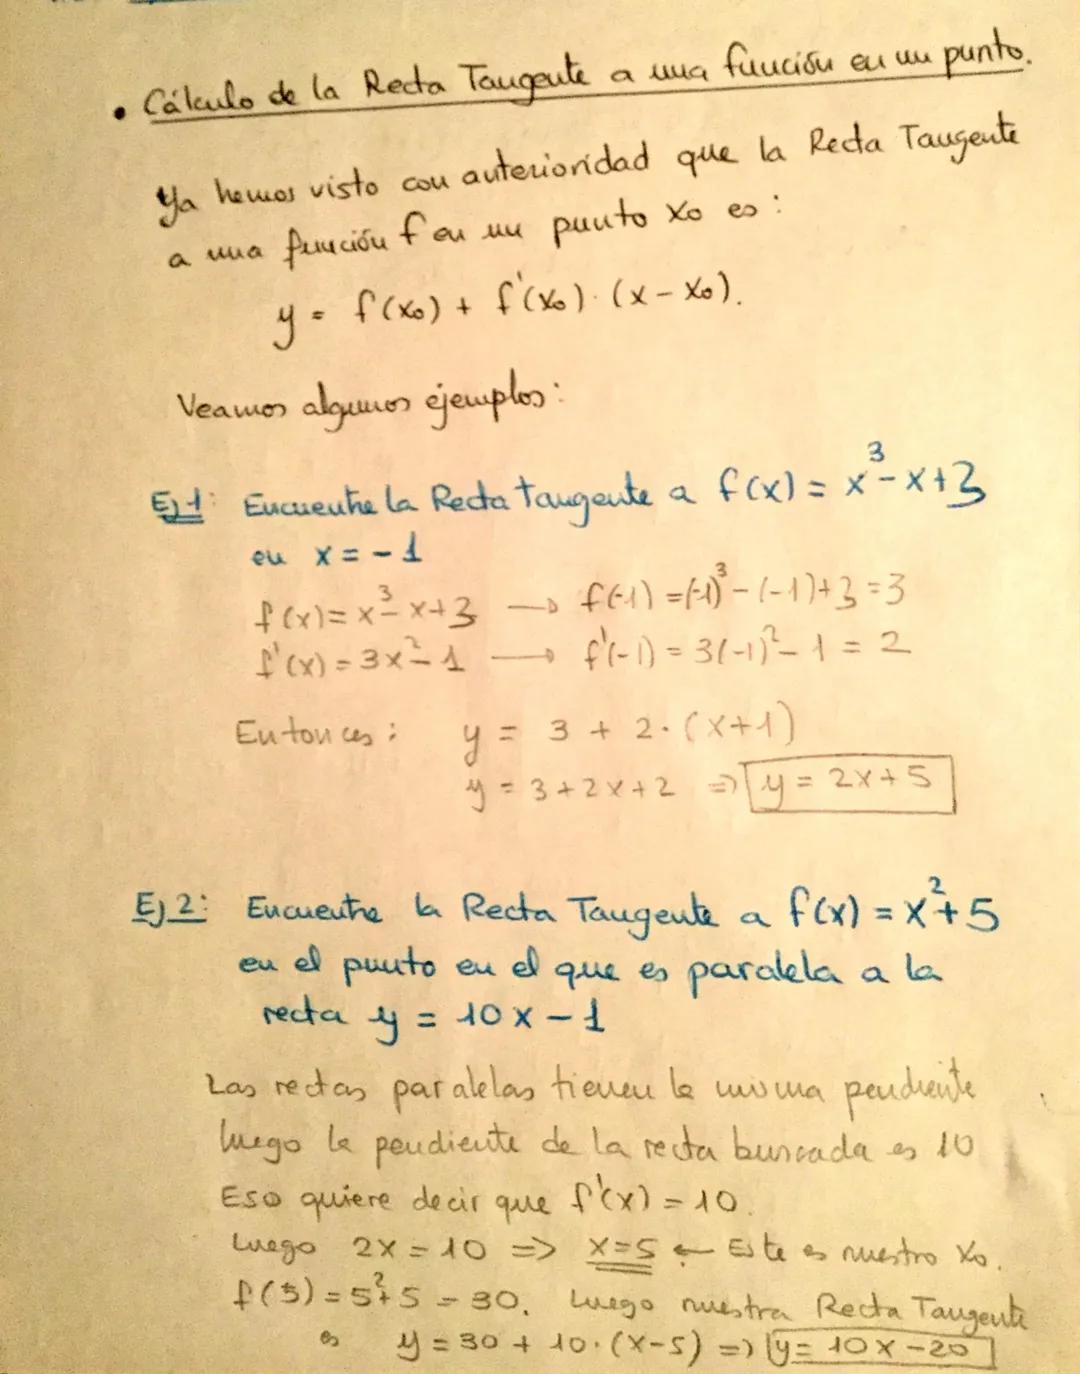 • Cálculo de la Recta Tangente a una función en un punto.
Ya hemos visto con anterioridad que la Recta Tangente
a una función f en un punto x₀ es:
y = f(x₀) + f'(x₀)·(x - x₀).
Veamos algunos ejemplos:
Ej 1: Encuentre la Recta tangente a f(x) = x³ - x + 3
en x = -1
f(x) = x³ - x + 3 → f(-1) = (-1)³ - (-1) + 3 = 3
f'(x) = 3x² - 1 → f'(-1) = 3(-1)² - 1 = 2
Entonces: y = 3 + 2·(x+1)
y = 3 + 2x + 2 => y = 2x + 5
Ej 2: Encuentre la Recta Tangente a f(x) = x² + 5
en el punto en el que es paralela a la
recta y = 10x - 1
Las rectas paralelas tienen la misma pendiente
luego la pendiente de la recta buscada es 10
Eso quiere decir que f'(x) = 10.
Luego 2x = 10 => x = 5 ← Este es nuestro x₀.
f(5) = 5² + 5 = 30. Luego nuestra Recta Tangente
es y = 30 + 10·(x-5) => y = 10x - 20